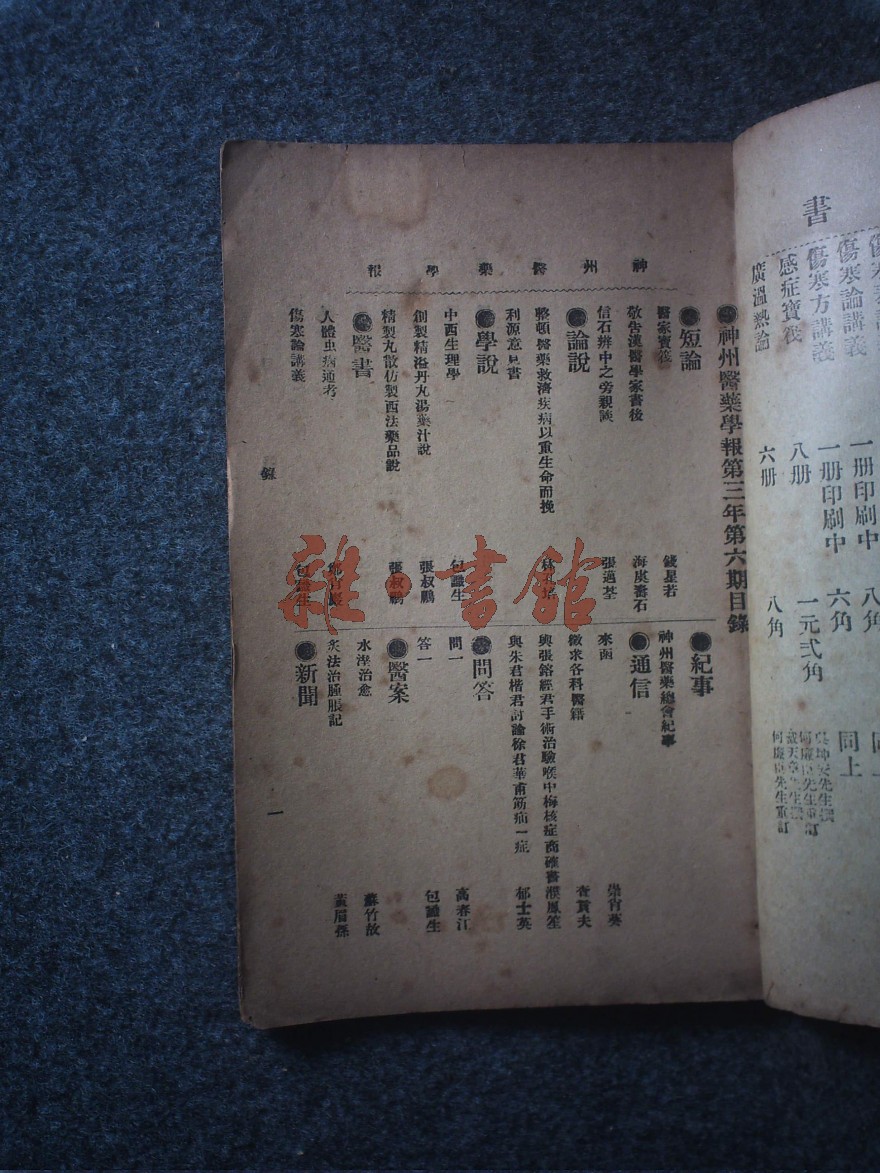 神州醫藥學報
神州醫藥學報第三年第六期目錄
短論
醫家寶筏 錢星若
敬告漢醫學家書後 海虞蕃石
信石辨中之旁親談 張邁荃
論說
整頓醫藥救濟疾病以重生命而挽
利源意見書
學說
中西生理學 包識生
創製精溢丹丸湯藥汁說 張叔鵬
精製丸散仿製西法藥品說 張叔鵬
醫書
人體虫病通考
傷寒論講義 包識生
紀事
神州醫藥總會紀事
通信
來函
徵求各科醫籍 查貢夫
與張鎔經君手術治驗喉中梅核症商確書 濮鳳笙
與朱君楷君討論徐君華甫筋疝一症 郁士英
問答
問一 高春江
答一 包識生
醫案
水溼治愈 蘇竹故
灸法治腫脹記 黃眉孫
新聞
錄
一
雜·書館
書
傷寒論講義 一册印刷中 八角
傷寒方講義 一册印刷中 六角 同上
感症寶筏 八册 一元弍角
廣溫熱論 六册 八角
何廉臣先生重訂
何廉臣先生重訂